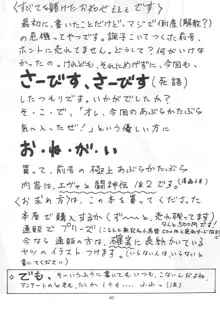 最初に、書いたことだけど、マジで倒産(解散?)
の危機ってやつです。調子こいてつくった前号、
ホントに売れてません。どうして?何がいけな
かったの。けれども、それにめげずに、今回も、
さーびす、さーびす(死語)
したつもりです。いかがでしたか?
そ・こ・で、「オレ、今回のあぶらかたぶら
気に入ったぜ!」という優しい方に
お・ね・が・い
買って、前号の極上あぶらかたぶら
内容は、エヴァと闘神伝1&2です。
<お求め方>は、この本を買ってくださった
本屋で購入するか(ず〜〜と、売れ残ってます)
通販でプリーズ!
今なら通販の方は、確実に表紙かいている
ヤツのイラストつけます。(いらない人は、いらないと
書いて下さい。)
。でも、そーいうふうに書いてもいつも、こないんだよね。
アンケートの